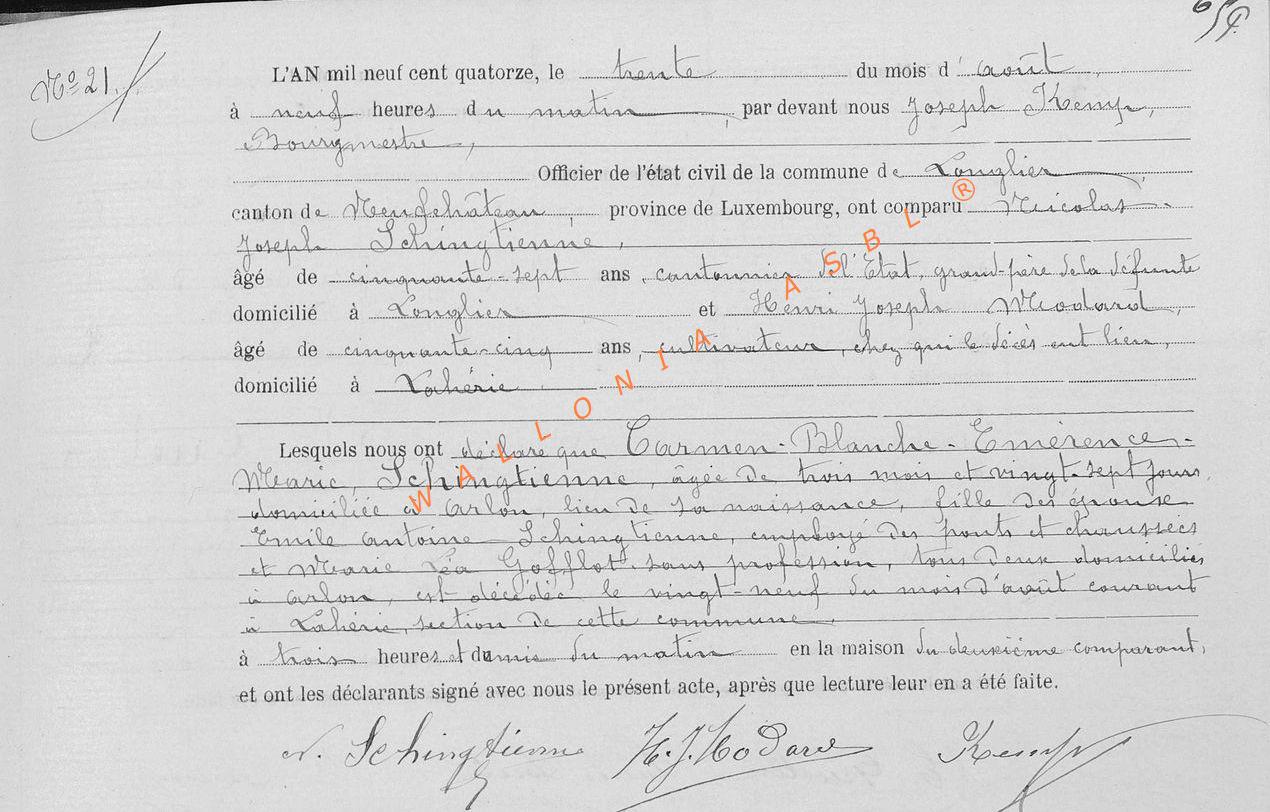 654.
Nº 21.
L'AN mil neuf cent quatorze, le trente du mois d'août,
à neuf heures du matin, par devant nous Joseph Kemp,
Bourgmestre,
Officier de l'état civil de la commune de Longlier,
canton de Neufchâteau, province de Luxembourg, ont comparu Nicolas-
Joseph Schingtienne,
âgé de cinquante-sept ans, cantonnier de l'Etat, grand-père de la défunte
domicilié à Longlier et Henri Joseph Modard,
âgé de cinquante-cinq ans, cultivateur, chez qui le décès eut lieu,
domicilié à Lahérie
Lesquels nous ont déclaré que Carmen-Blanche-Emérence-
Marie Schingtienne, âgée de trois mois et vingt-sept jours
domiciliée à Arlon, lieu de sa naissance, fille des époux
Emile Antoine Schingtienne, employé des ponts et chaussées
et Marie Léa Gofflot sans profession, tous deux domiciliés
à Arlon, est décédée le vingt-neuf du mois d'août courant
à Lahérie, section de cette commune,
à trois heures et demie du matin en la maison du deuxième comparant,
et ont les déclarants signé avec nous le présent acte, après que lecture leur en a été faite.
N. Schingtienne H. J. Modard Kemp
WALLONIA ASBL ®